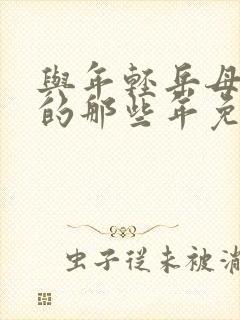 與年轻岳母
的那些年免
虫子從未被滿